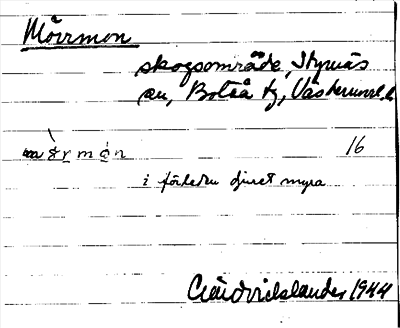 Mörrmon
skogsområde, Styrnäs
sn, Boteå tg, Västernorrl. l.
16
i förleden djuret myra
1944